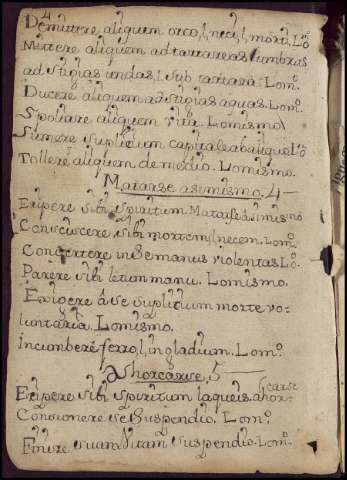 Demittere aliquem orco, l, neci, l, morti, Lo.
Mittere aliquem ad tartareas umbras
ad stigias undas, l, sub tartara. Lom.
Ducere aliquem ad stigias aquas. Lom.
Spoliare aliquem vita. Lomismo
Sumere suplicium capitale ab aliquo Lo
Tollere aliquem de medio. Lomismo.
Matarse asimismo. 4
Eripere sibi spiritum Matarse asimismo
Consciscere sibi mortem, l, necem. Lom.
Convertere in se manus violentas Lo.
Parere sibi letum manu. Lomismo.
Exigere a se suplicium morte vo-
luntaria. Lomismo.
incumbere ferro, l, in gladium. Lom.
Ahorcarse, 5
Eripere sibi spiritum laqueis ahor-
carse
Consumere se suspendio. Lom.
Finire suam vitam suspendio. Lom.